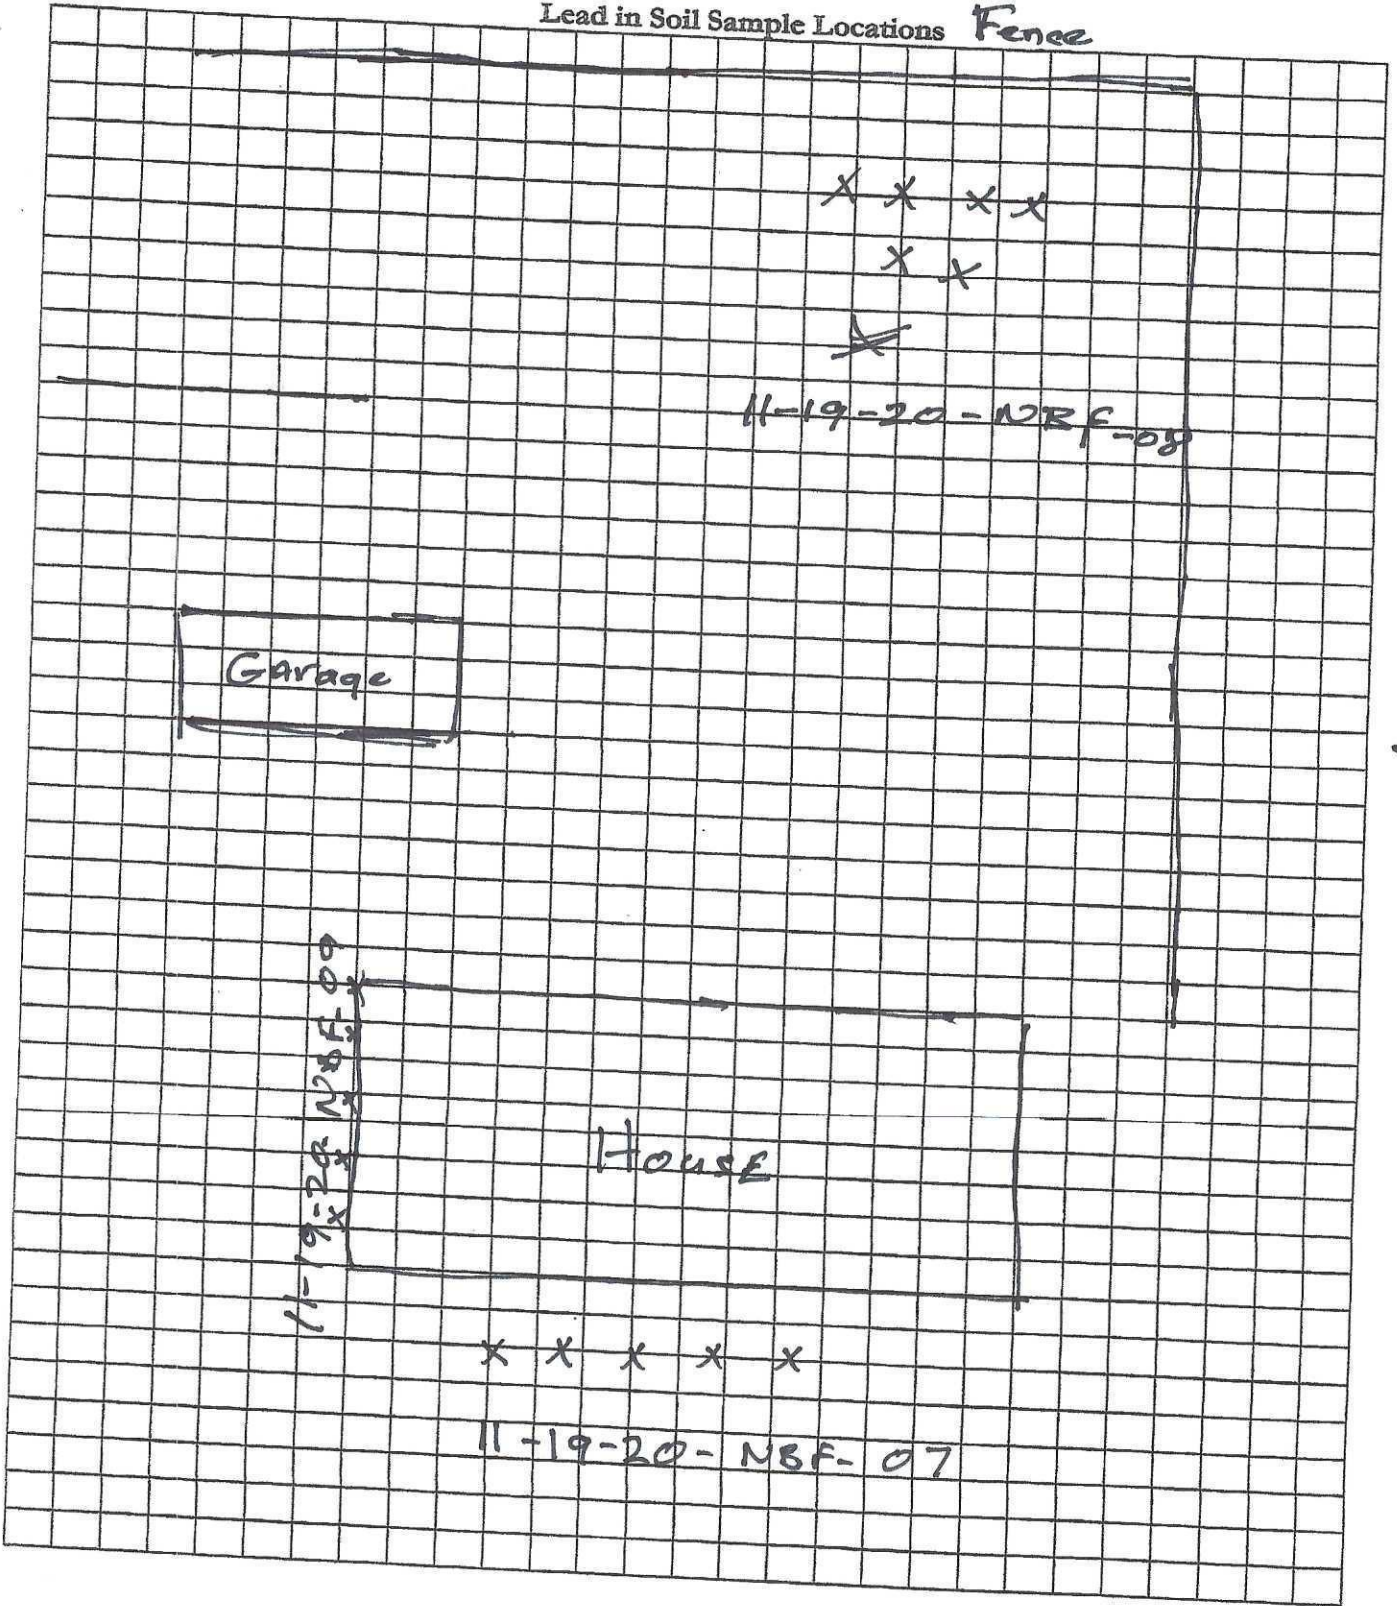 Lead in Soil Sample Locations Fence
11-19-20-NBF-08
Garage
11-19-20-NBF-09
House
11-19-20-NBF-07